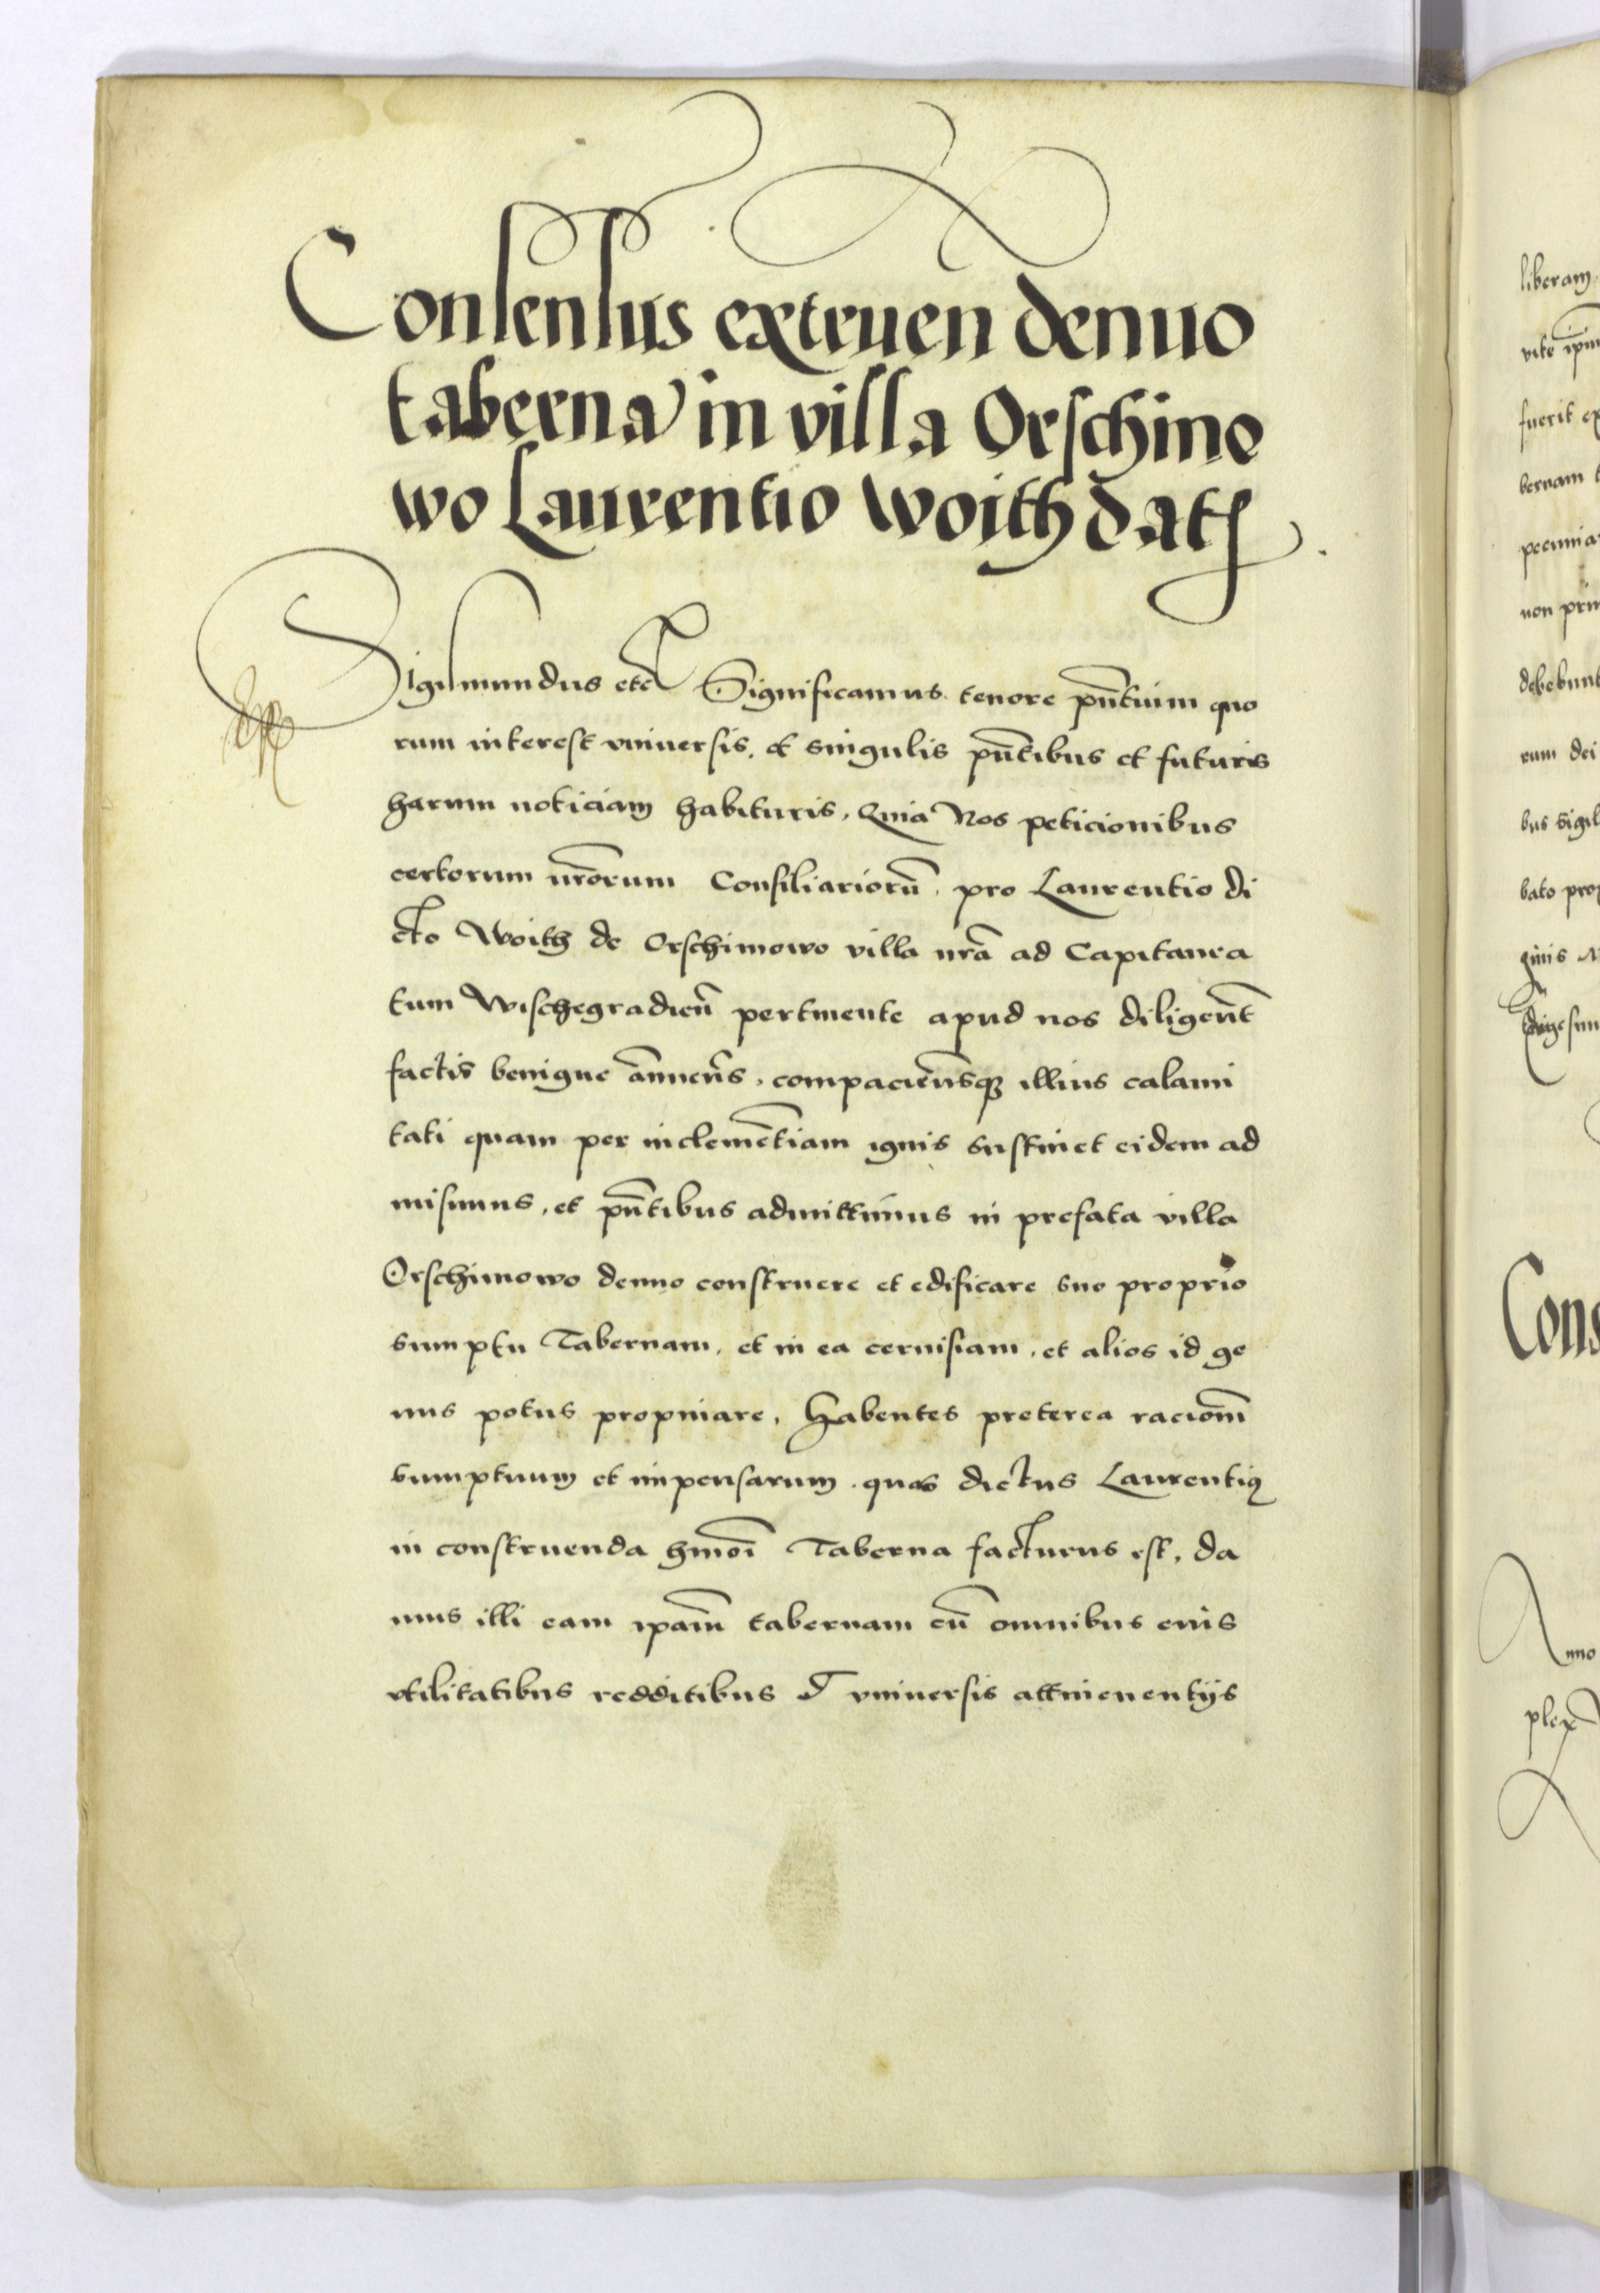 Consensus extruen denuo
taberna in villa Orschino
wo Laurentio Woith dat9
Sigismundus etc Significamus tenore pñtium quo
rum interest vniuersis, et singulis pñtibus et futuris
harum noticiam habituris, Quia Nos peticionibus
certorum nrõrum Consiliariorũ, pro Laurentio di
cto Woith de Orschimowo villa nrã ad Capitanea
tum Wischegradieñ pertinente apud nos diligent̃
factis benigne ãnnueñs, compaciensq3 illius calami
tati quam per inclemẽtiam ignis sustinet eidem ad
misimus, et pñtibus admittimus in prefata villa
Orschimowo denuo construere et edificare suo proprio
sumptu Tabernam, et in ea ceruisiam, et alios id ge
nus potus propinare, Habentes preterea racionẽ
sumptuum et impensarum quas dictus Laurenti9
in construenda hmõi Taberna facturus est, da
mus illi eam ipam̃ tabernam cũ omnibus eius
vtilitatibus redditibus et vniuersis attinenentijs
liberam
fuerit ex
bernam t
pecunia
non prim
debebunt
rum dei
bus sigil
bato prop
ginis
Cons
Anno